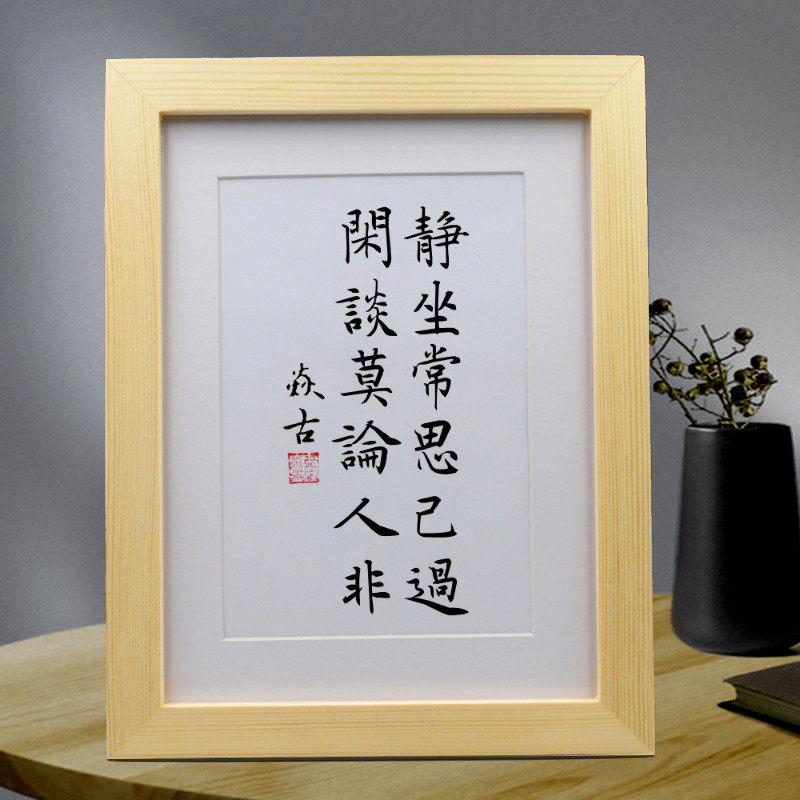 靜坐常思己過
閑談莫論人非
焱古